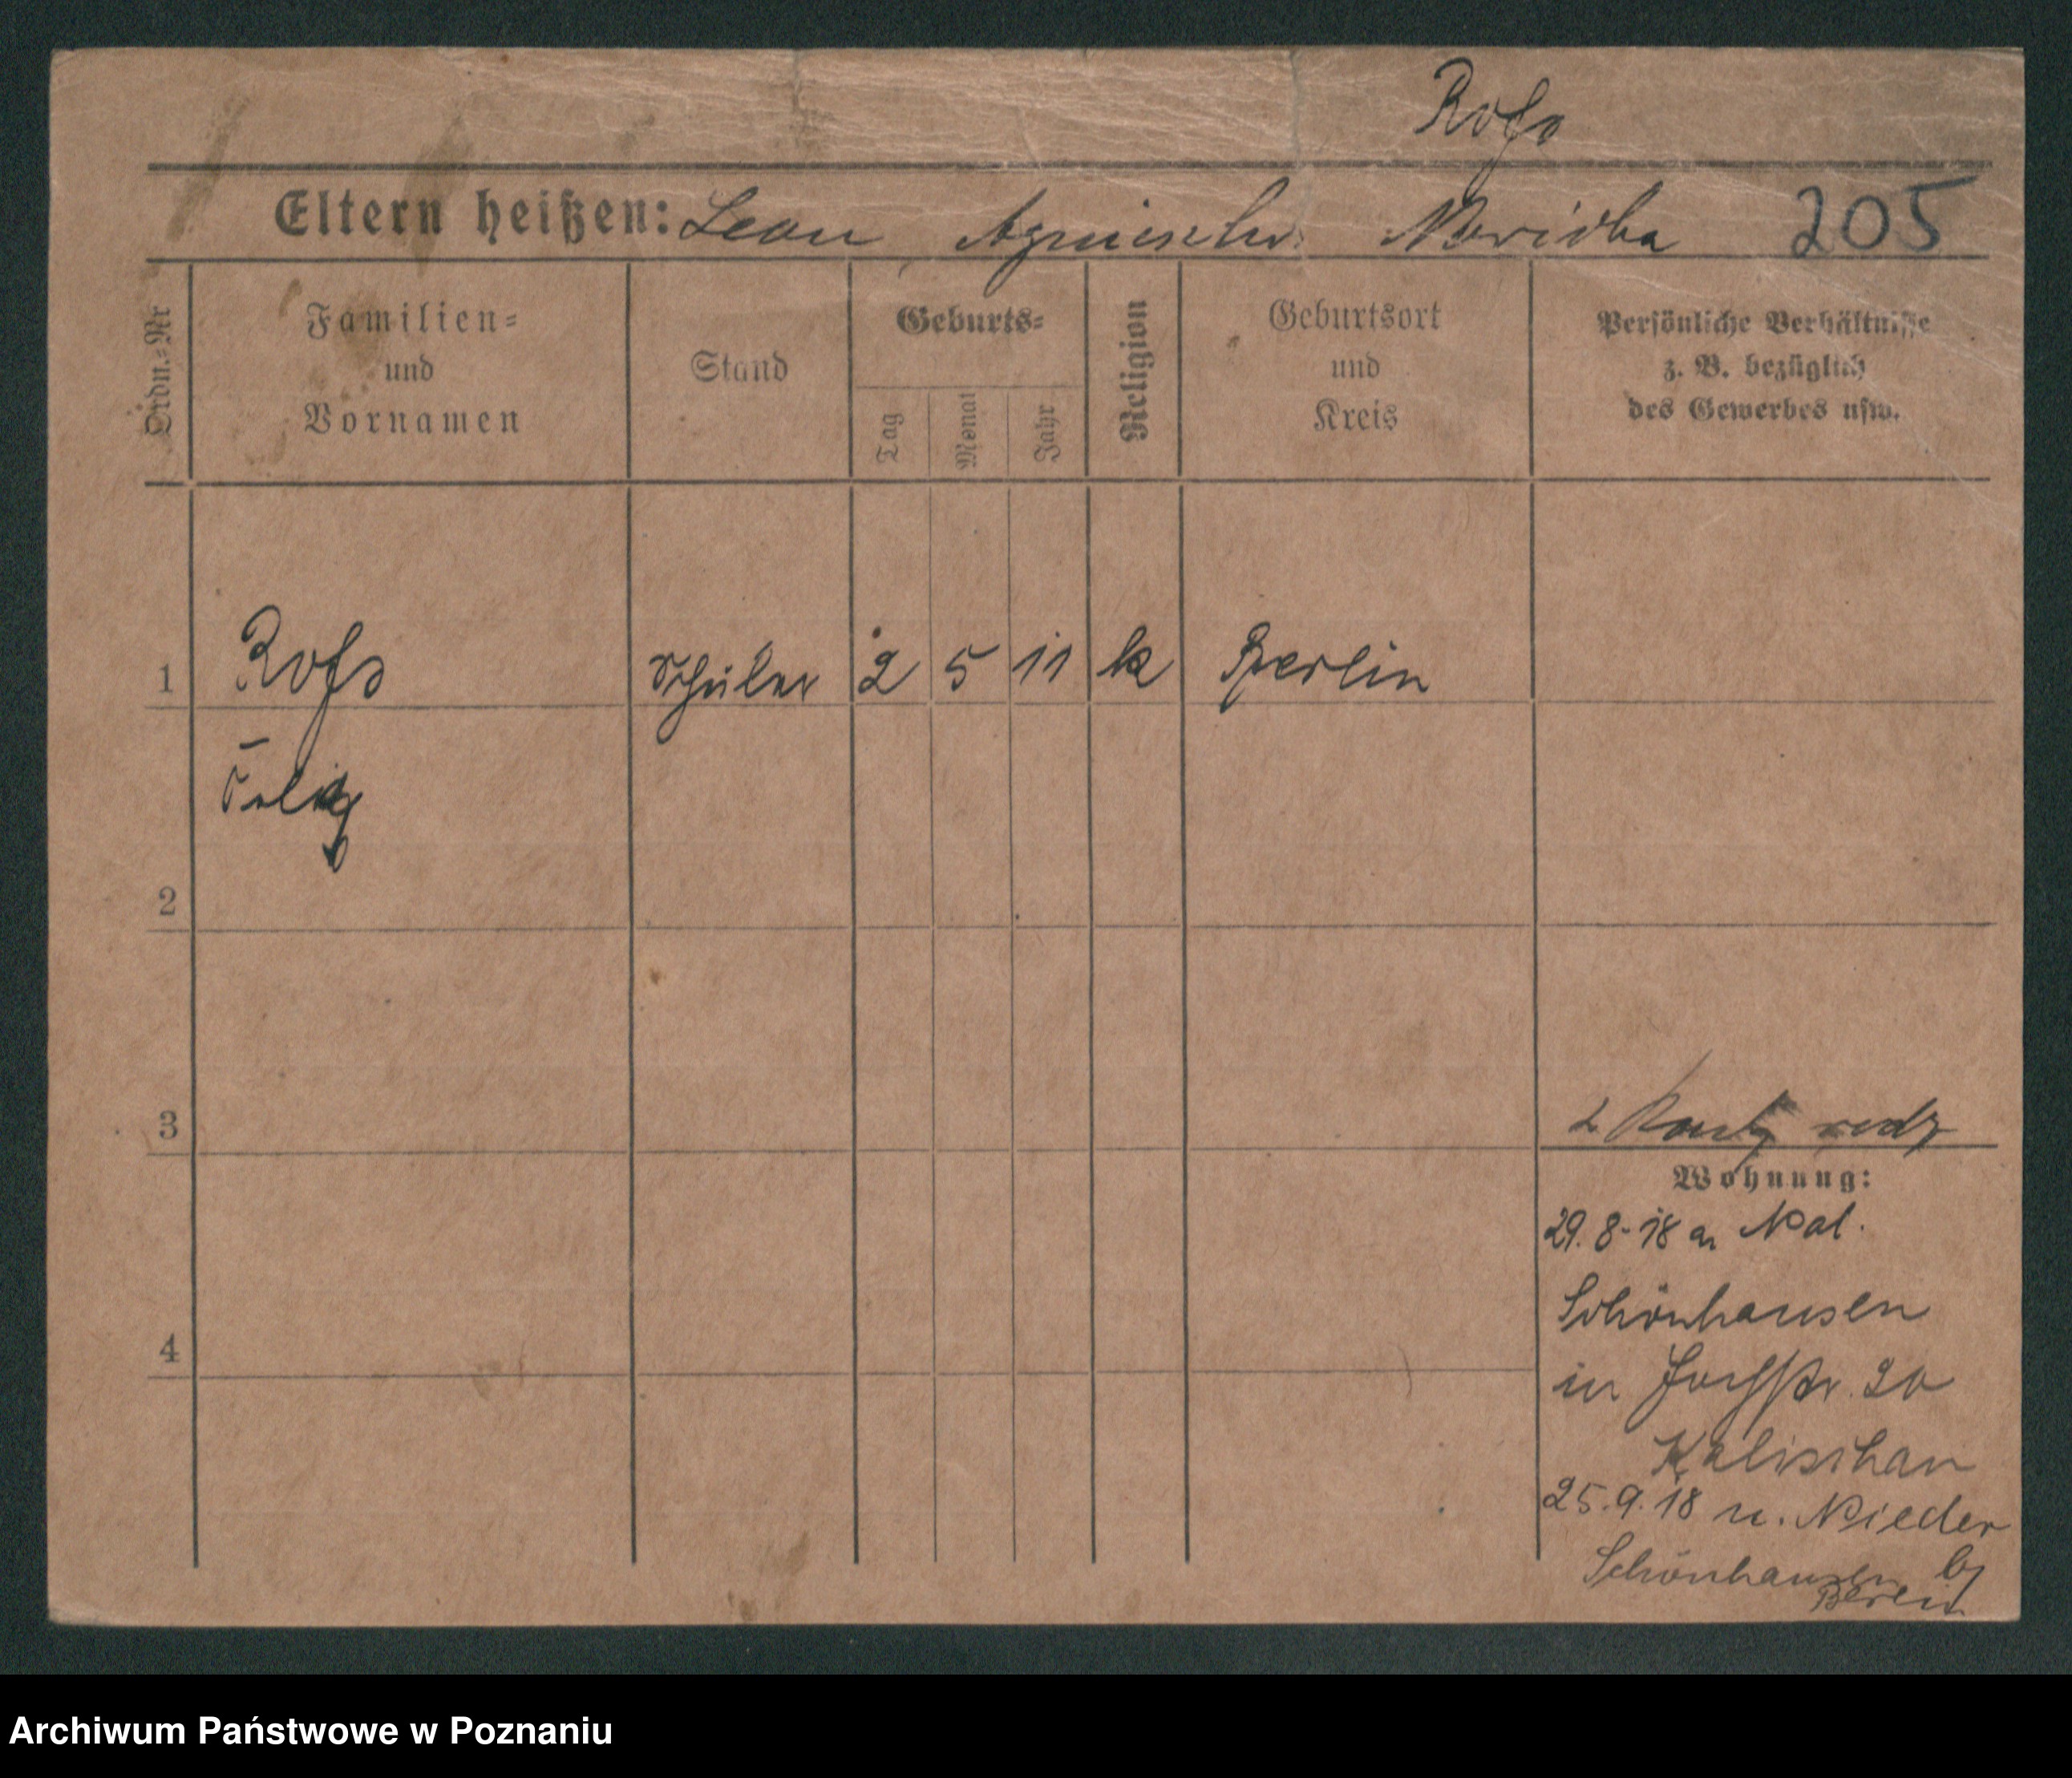 Roß
Eltern heißen: Leon 205
Ordn.=Nr
Familien=
und
Vornamen
Stand
Geburts=
Tag
Monat
Jahr
Religion
Geburtsort
und
Kreis
Persönliche Verhältnisse
z. B. bezüglich
des Gewerbes usw.
1 Roß Schüler 2 5 11 k Berlin
Felix
2
3
Wohnung:
29. 8. 18
Schönhausen
4
in 20
Kalischan
25. 9. 18 n. Nieder
Schönhausen b/
Berlin
Archiwum Państwowe w Poznaniu